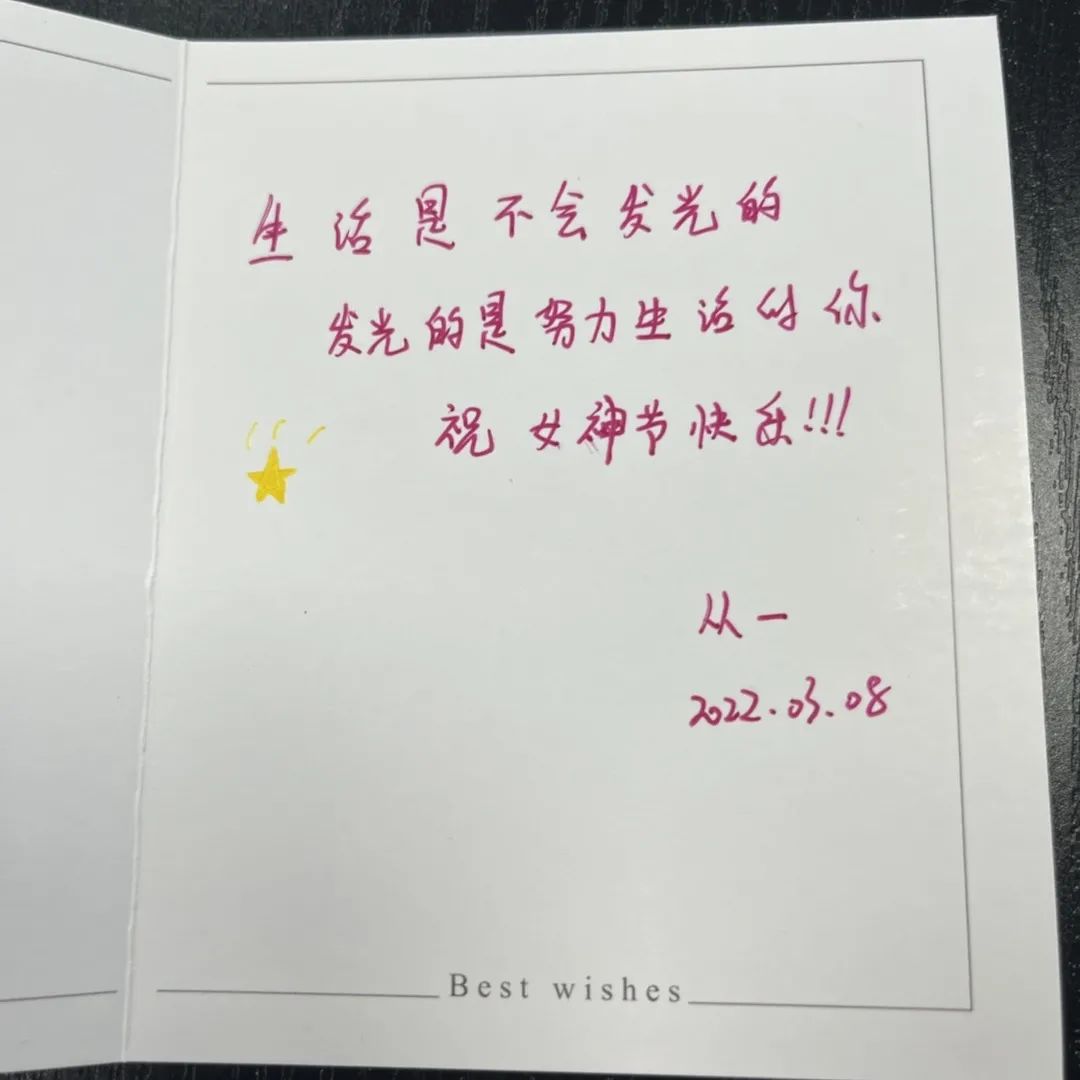 生活是不会发光的
发光的是努力生活的你
祝女神节快乐!!!
从一
2022.03.08
Best wishes